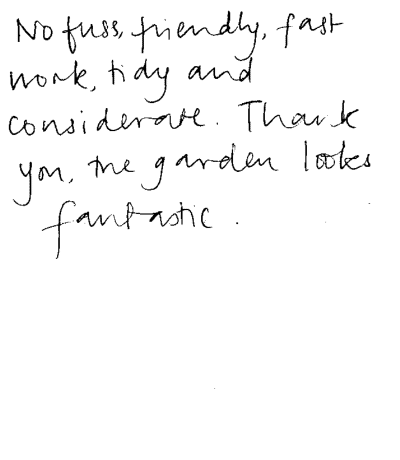 No fuss, friendly, fast
work, tidy and
considerate. Thank
you, the garden looks
fantastic.